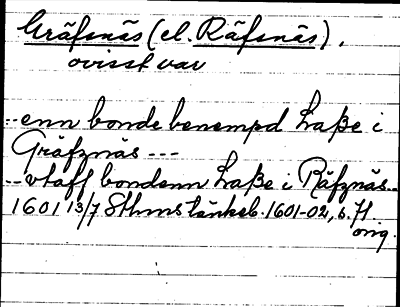 Gräfsnäs (el. Räfsnäs),
ovisst var
-- enn bonde benempd Laße i
Gräfznäs ---
-- aff bondenn Laße i Räfznäs--
1601 13/7 Sthms tänkeb. 1601-02, s. 71
orig.